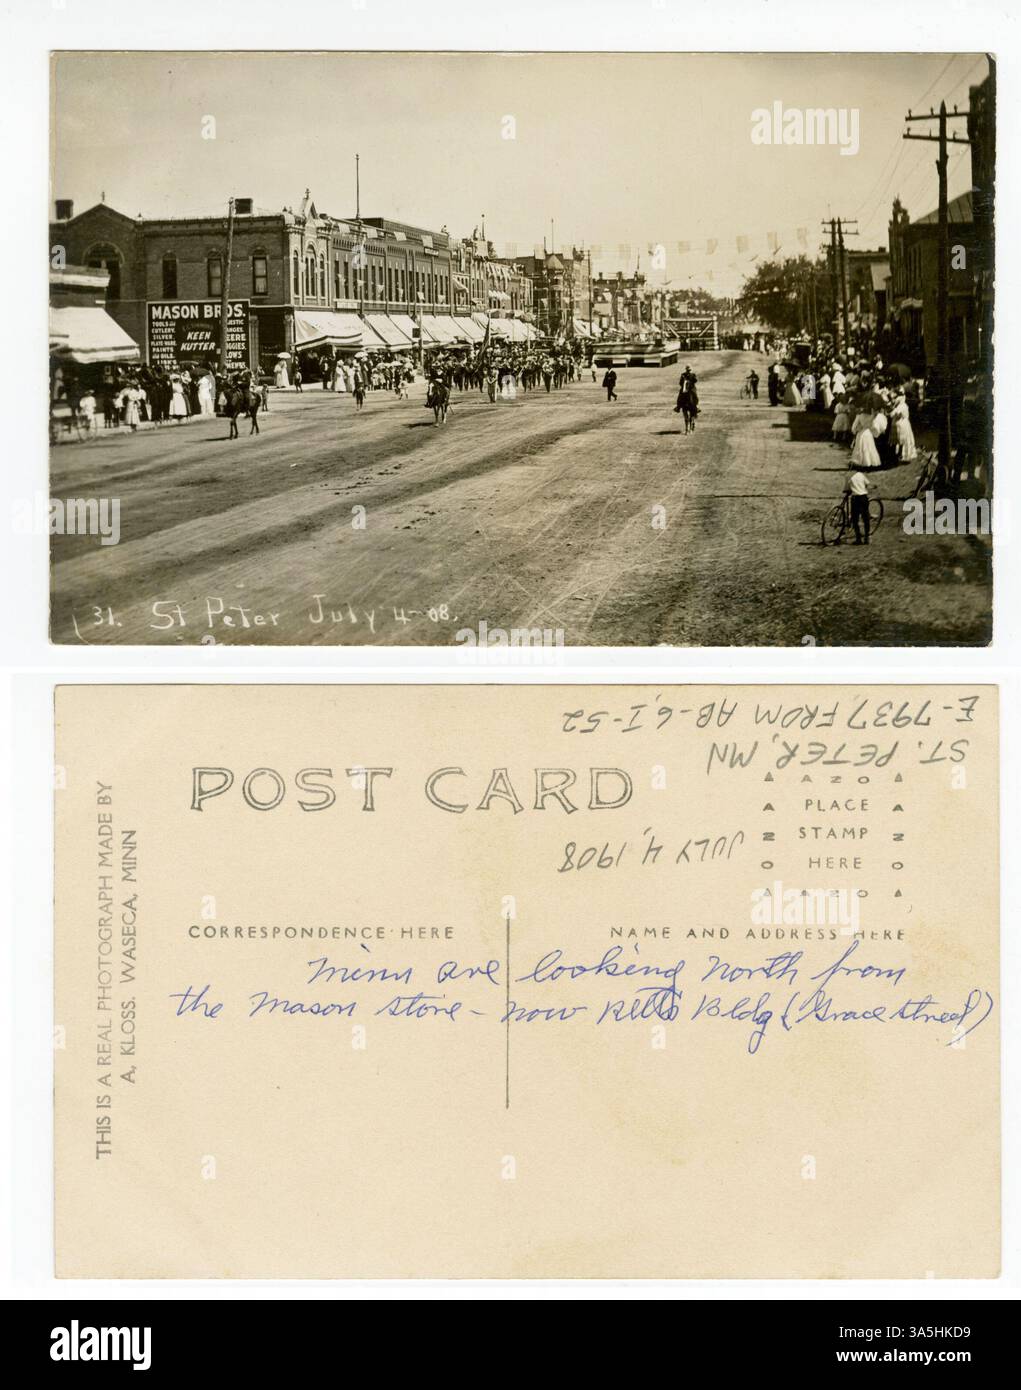 MASON BROS.
TOOLS
CUTLERY,
SILVER
PLATE WARE
PAINTS
AND OILS.
KEEN
KUTTER
31. St Peter July 4-08.
alamy
E-7937, FROM AB-6, I-52
ST. PETER, MN
JULY 4, 1908
POST CARD
AZO
PLACE
STAMP
HERE
AZO
THIS IS A REAL PHOTOGRAPH MADE BY
A. KLOSS. WASECA, MINN
CORRESPONDENCE HERE
NAME AND ADDRESS HERE
are looking north from
the Mason store - now Bldg (Grace street)
alamy
Image ID: 3A5HKD9
www.alamy.com